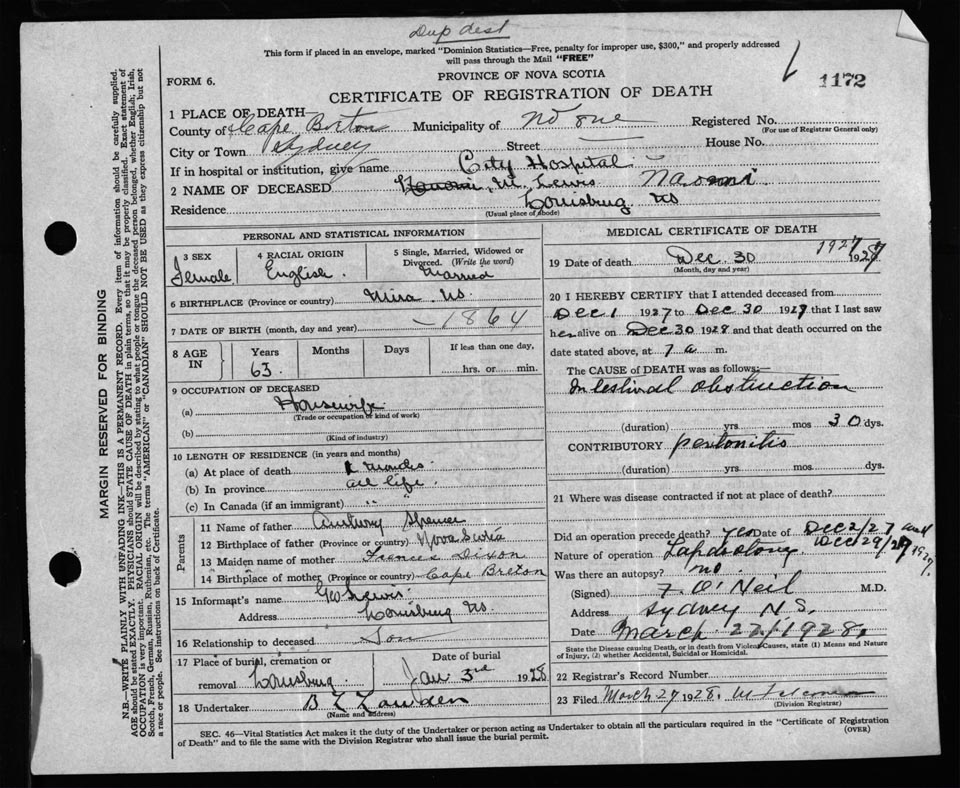 Dup dest
This form if placed in an envelope, marked "Dominion Statistics—Free, penalty for improper use, $300," and properly addressed
will pass through the Mail "FREE"
FORM 6.
PROVINCE OF NOVA SCOTIA
1172
CERTIFICATE OF REGISTRATION OF DEATH
1 PLACE OF DEATH
County of Cape Breton Municipality of No one Registered No.
(For use of Registrar General only)
City or Town Sydney Street House No.
If in hospital or institution, give name City Hospital
2 NAME OF DECEASED M. Lewis Naomi
Residence Louisburg NS
(Usual place of abode)
PERSONAL AND STATISTICAL INFORMATION
3 SEX Female
4 RACIAL ORIGIN English
5 Single, Married, Widowed or Divorced. (Write the word) Married
6 BIRTHPLACE (Province or country) Mira NS
7 DATE OF BIRTH (month, day and year) —1864
8 AGE IN Years 63 Months Days If less than one day, hrs. or min.
9 OCCUPATION OF DECEASED
(a) Housewife
(Trade or occupation or kind of work)
(b)
(Kind of industry)
10 LENGTH OF RESIDENCE (in years and months)
(a) At place of death months
(b) In province all life
(c) In Canada (if an immigrant) " "
Parents
11 Name of father Anthony Spencer
12 Birthplace of father (Province or country) Nova Scotia
13 Maiden name of mother Frances Dixon
14 Birthplace of mother (Province or country) Cape Breton
15 Informant's name Geo Lewis
Address Louisburg NS
16 Relationship to deceased Son
17 Place of burial, cremation or removal Louisburg Date of burial Jan 3rd 1928
18 Undertaker
(Name and address)
MEDICAL CERTIFICATE OF DEATH
19 Date of death Dec. 30 1927
(Month, day and year)
20 I HEREBY CERTIFY that I attended deceased from
Dec 1 1927 to Dec 30 1927 that I last saw
her alive on Dec 30 1928 and that death occurred on the
date stated above, at 7 a m.
The CAUSE of DEATH was as follows:—
Intestinal obstruction
(duration) yrs mos 30 dys.
CONTRIBUTORY peritonitis
(duration) yrs mos dys.
21 Where was disease contracted if not at place of death?
Did an operation precede death? Yes Date of Dec 2/27 and
Dec 29/27 1927.
Nature of operation Lapdolomy
Was there an autopsy? no
(Signed) F. O'Neil M.D.
Address Sydney N.S.
Date March 22/1928.
State the Disease causing Death, or in death from Violent Causes, state (1) Means and Nature
of Injury, (2) whether Accidental, Suicidal or Homicidal.
22 Registrar's Record Number
23 Filed March 27 1928.
(Division Registrar)
SEC. 46—Vital Statistics Act makes it the duty of the Undertaker or person acting as Undertaker to obtain all the particulars required in the "Certificate of Registration
of Death" and to file the same with the Division Registrar who shall issue the burial permit.
(OVER)
MARGIN RESERVED FOR BINDING
N.B.—WRITE PLAINLY WITH UNFADING INK—THIS IS A PERMANENT RECORD. Every item of information should be carefully supplied.
AGE should be stated EXACTLY. PHYSICIANS should STATE CAUSE OF DEATH in plain terms, so that it may be properly classified. Exact statement of
OCCUPATION is very important. RACIAL ORIGIN will be described by stating to what people or tongue the deceased person belonged, whether English, Irish,
Scotch, French, German, Russian, Ruthenian, etc. The terms "AMERICAN" or "CANADIAN" SHOULD NOT BE USED as they express citizenship but not
a race or people. See instructions on back of Certificate.